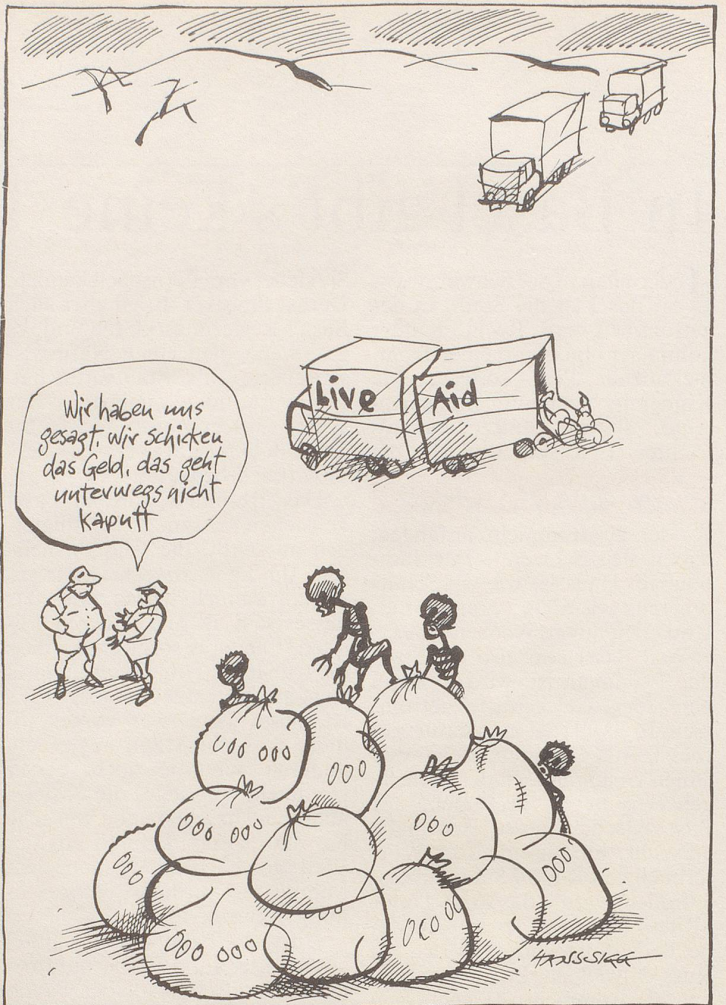 Live Aid
Wir haben uns
gesagt, wir schicken
das Geld, das geht
unterwegs nicht
kaputt
000 000
000
000 000
000
000
000
000 000
000
HANSSIGG